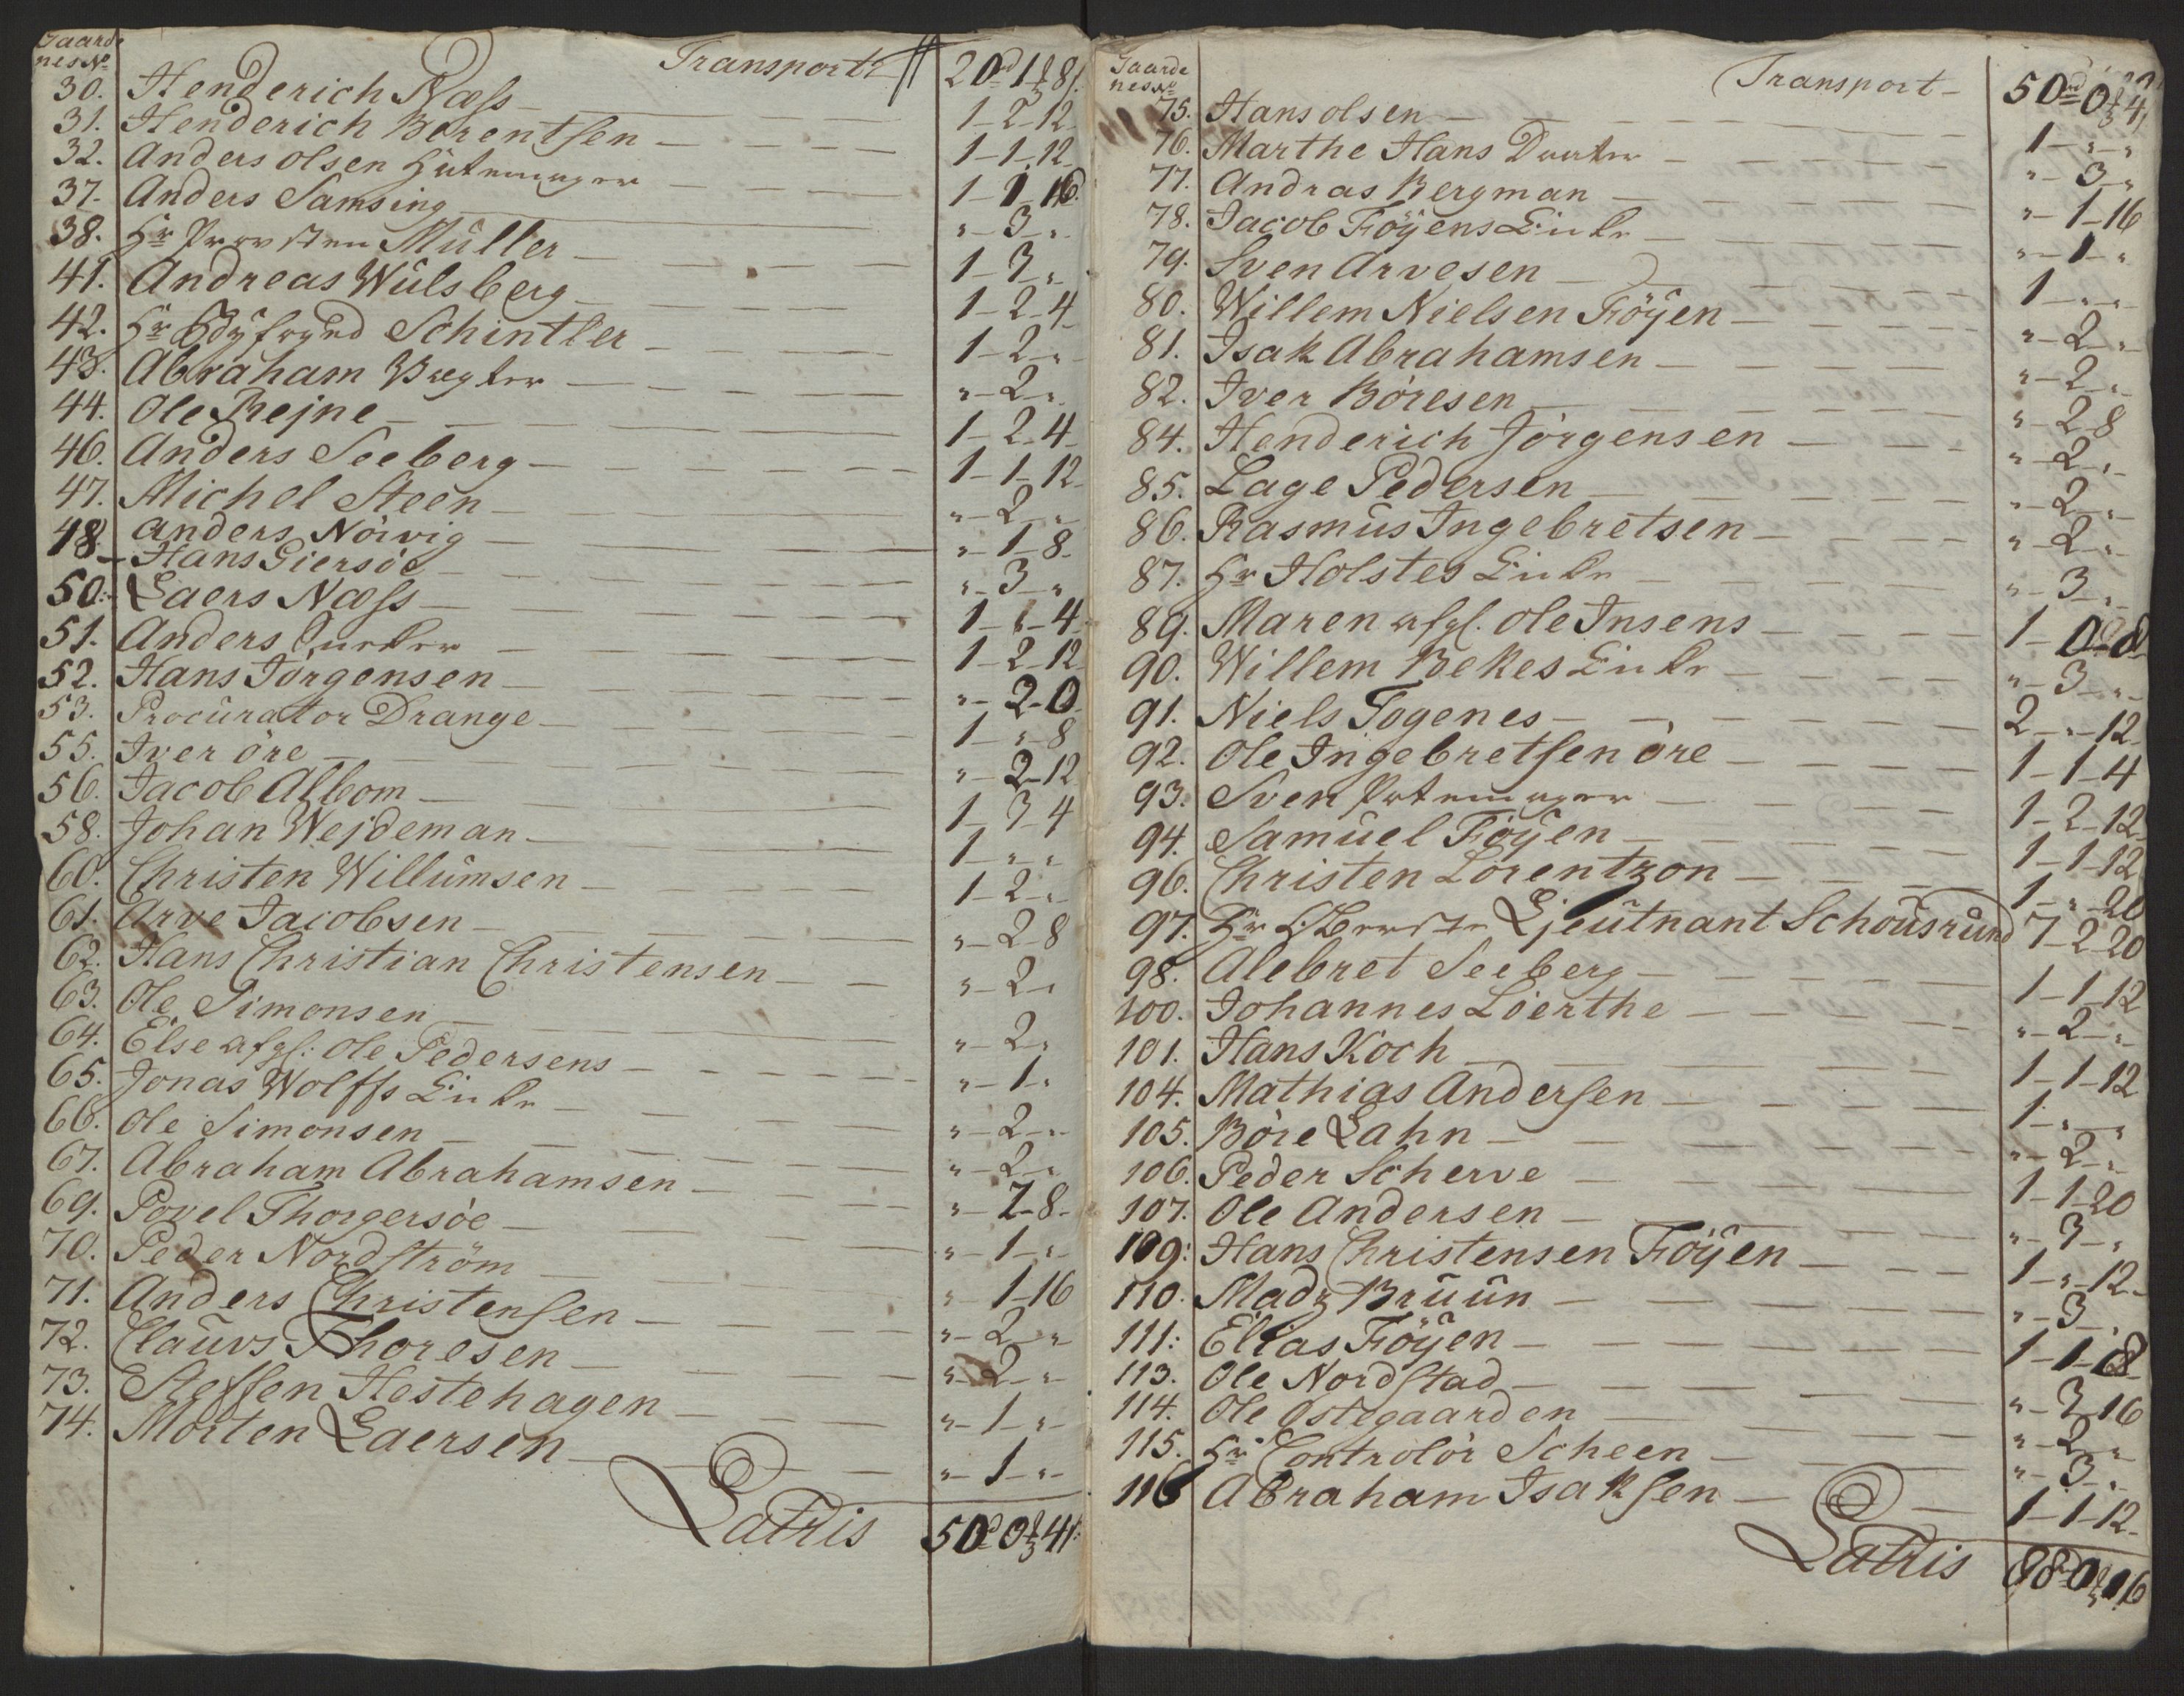 Gaarde
nes No
Transport 20 rd 1 8
30. Henderich Næss 1-2-12
31. Henderich Berentsen 1-1-12
32. Anders olsen Hutemager 1-1-16
37. Anders Samsing "-3-"
38. Hr Provsten Müller 1-3-"
41. Andreas Wülsberg 1-2-4
42. Hr Schintler 1-2-"
43. Abraham Vægter "-2-"
44. Ole Rejne 1-2-4
46. Anders Seeberg 1-1-12
47. Michel Steen "-2-"
48. Anders Nörvig "-1-8
- Hans Giersöe "-3-"
50. Laers Næss 1-"-4
51. Anders 1-2-12
52. Hans Jörgensen "-2-0
53. Procurator Drange 1-"-8
55. Iver öre "-2-12
56. Jacob Albom 1-3-4
58. Johan Wejdeman 1-"-"
60. Christen Willumsen 1-2-"
61. Arve Jacobsen "-2-8
62. Hans Christian Christensen "-2-"
63. Ole Simonsen "-2-"
64. Else afgl: Ole Pedersens "-1-"
65. Jonas Wolffs Enke "-2-"
66. Ole Simonsen "-2-"
67. Abraham Abrahamsen "-2-8
69. Povel Thorgersöe "-1-"
70. Peder Nordström "-1-16
71. Anders Christensen "-2-"
72. Clauvs Thoresen "-2-"
73. Steffen Hestehagen "-1-"
74. Morten Laersen "-1-"
Latris 50 rd 0 4
Gaarde
nes No
Transport 50 rd 0 4
75. Hans olsen 1-"-"
76. Marthe Hans Daatter "-3-"
77. Andras Bergman "-1-16
78. Jacob Föÿens Enke "-1-"
79. Sven Arvesen 1-"-"
80. Willem Nielsen Föÿen "-2-"
81. Isak Abrahamsen "-2-"
82. Iver Böresen "-2-8
84. Henderich Jörgensen "-2-"
85. Lage Pedersen "-2-"
86. Rasmus Ingebretsen "-2-"
87. Hr Holstes Enke "-3-"
89. Maren afgl. Ole Insens 1-0-8
90. Willem Bekes Enke "-3-"
91. Niels Togenes 2-"-12
92. Ole Ingebretsen öre 1-1-4
93. Sven Potemager 1-2-12
94. Samuel Föÿen 1-1-12
96. Christen Lorentzon 1-"-20
97. Hr Oberste Ljeutnant Schousrund 7-2-20
98. Alebret Seeberg 1-1-12
100. Johannes Lierthe "-2-"
101. Hans Koch 1-1-12
104. Mathias Andersen 1-"-"
105. Böre Lahn "-2-"
106. Peder Scherve 1-1-20
107. Ole Andersen "-3-"
109. Hans Christensen Föÿen 1-"-12
110. Madz Bruun "-3-"
111. Elias Föÿen 1-1-8
113. Ole Nordstad "-3-16
114. Ole Östegaarden "-2-"
115. Hr Controlör Scheen "-3-"
116 Abraham Isaksen 1-1-12
Latris 98 rd 0 16